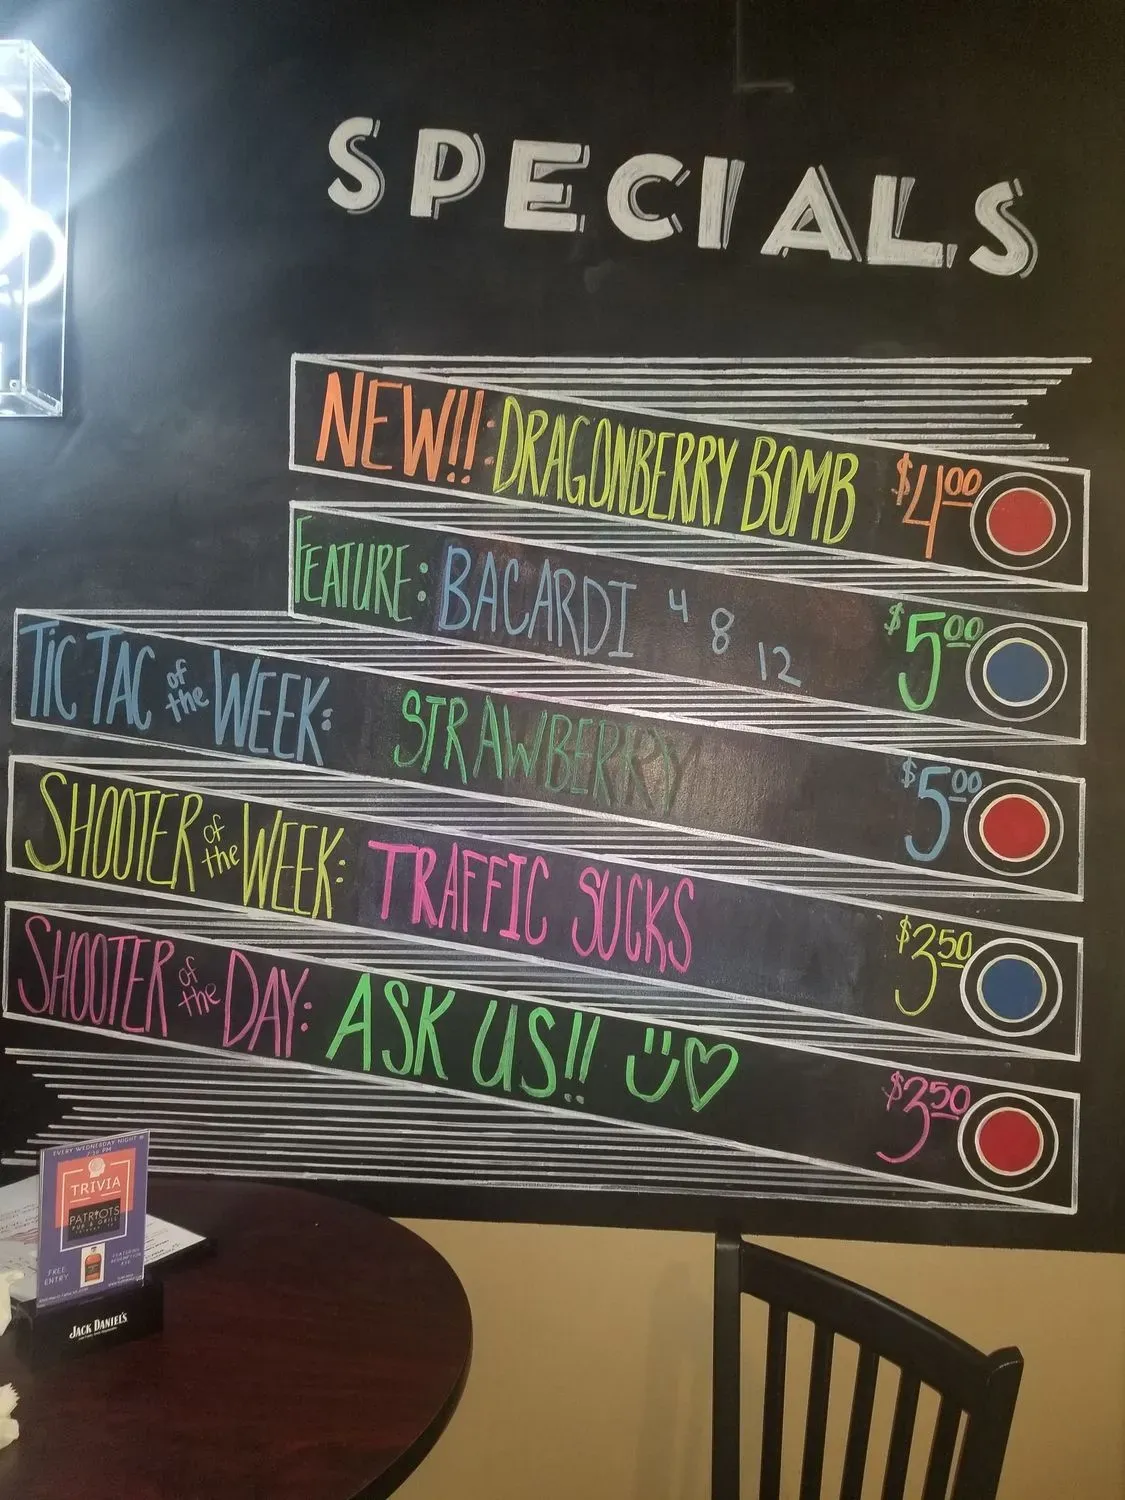 SPECIALS
NEW!!: DRAGONBERRY BOMB $4.00
FEATURE: BACARDI 4 8 12 $5.00
TIC TAC of the WEEK: STRAWBERRY $5.00
SHOOTER of the WEEK: TRAFFIC SUCKS $3.50
SHOOTER of the DAY: ASK US!! $3.50
EVERY WEDNESDAY NIGHT @
7:30 PM
TRIVIA
PATRIOTS
PUB & GRILL
FREE
ENTRY
FEATURING
REDEMPTION
RYE
JACK DANIEL'S